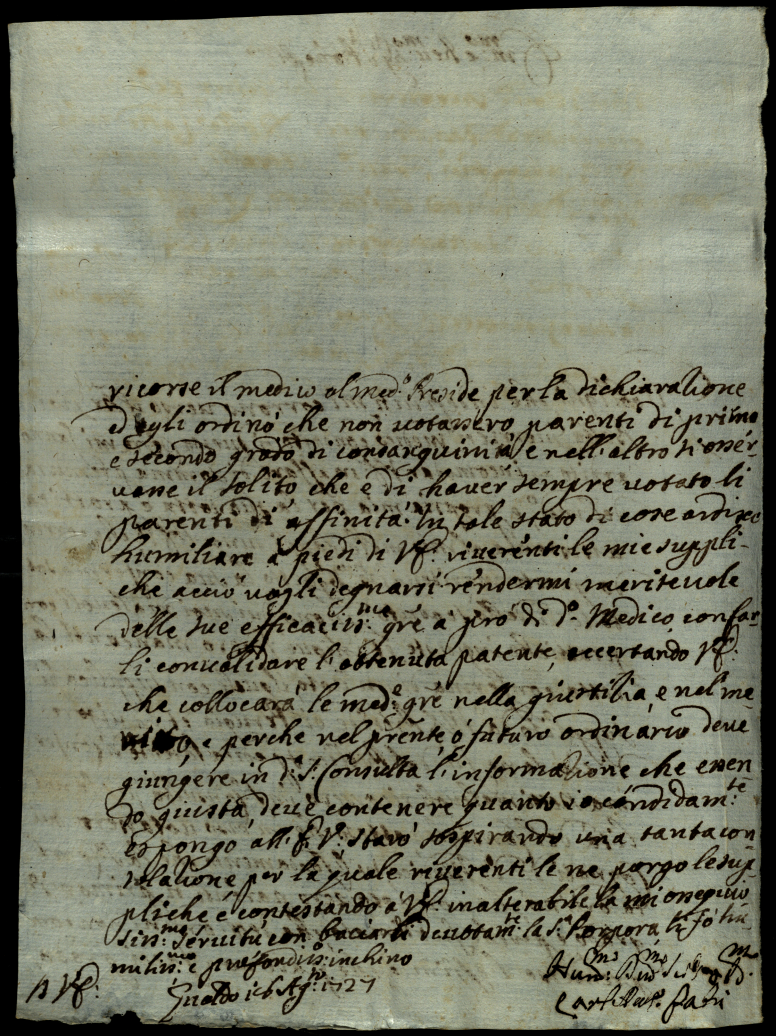 ricorse il medico al med.º Preside per la dichiaratione
ed egli ordinò che non votassero parenti di primo
e secondo grado di consanguinità e nell'altro si osser-
vasse il solito che e di haver sempre votato li
parenti di affinità. In tale stato di cose ardisco
humiliare a piedi di V.E. riverenti le mie suppli-
che acciò vogli degnarsi rendermi meritevole
delle sue efficaciss.me gre a prò di d.º Medico con far-
li convalidare l'ottenuta patente, accertando V.E.
che collocarà le med.e gre nella giustitia, e nel me
rito, e perche nel prnte ò futuro ordinario deve
giungere in d.ª S. Consulta l'informatione che essen
do giusta, deve contenere quanto io candidam.te
espongo all' E.V. starò sospirando una tanta con
solatione, per la quale riverenti le ne porgo le sup
pliche e contestando à V.E. inalterabile la mi ossequio
siss.ma servitù con baciarli devotam.te la S. Porpora li fò hu
miliss.mo e profondiss.º inchino
Gualdo 16 Ag.to 1727
D V.E.
Hum.mo